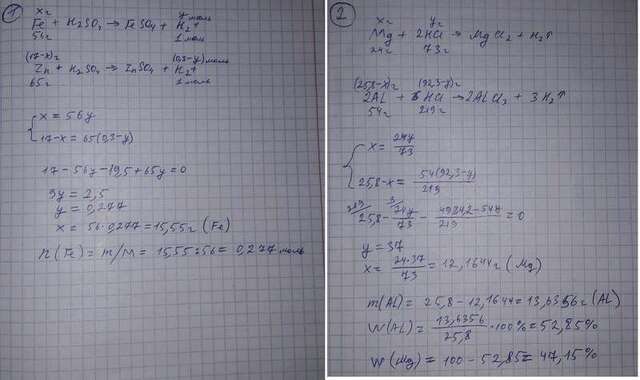 1
x г
y моль
Fe + H₂SO₄ → FeSO₄ + H₂↑
56г
1 моль
(17-x)г
(0,3-y) моль
Zn + H₂SO₄ → ZnSO₄ + H₂↑
65г
1 моль
x = 56y
17-x = 65(0,3-y)
17 - 56y - 19,5 + 65y = 0
9y = 2,5
y = 0,277
x = 56·0,277 = 15,55г (Fe)
n(Fe) = m/M = 15,55:56 = 0,277 моль
2
x г
y г
Mg + 2HCl → MgCl₂ + H₂↑
24г
73г
(25,8-x)г
(92,3-y)г
2Al + 6HCl → 2AlCl₃ + 3H₂↑
54г
219г
x = 24y/73
25,8-x = 54(92,3-y)/219
219/ 3/
25,8 - 24y/73 - 4984,2-54y/219 = 0
y = 37
x = 24·37/73 = 12,1644г (Mg)
m(Al) = 25,8 - 12,1644 = 13,6356г (Al)
W(Al) = 13,6356/25,8 · 100% = 52,85%
W(Mg) = 100 - 52,85 = 47,15%